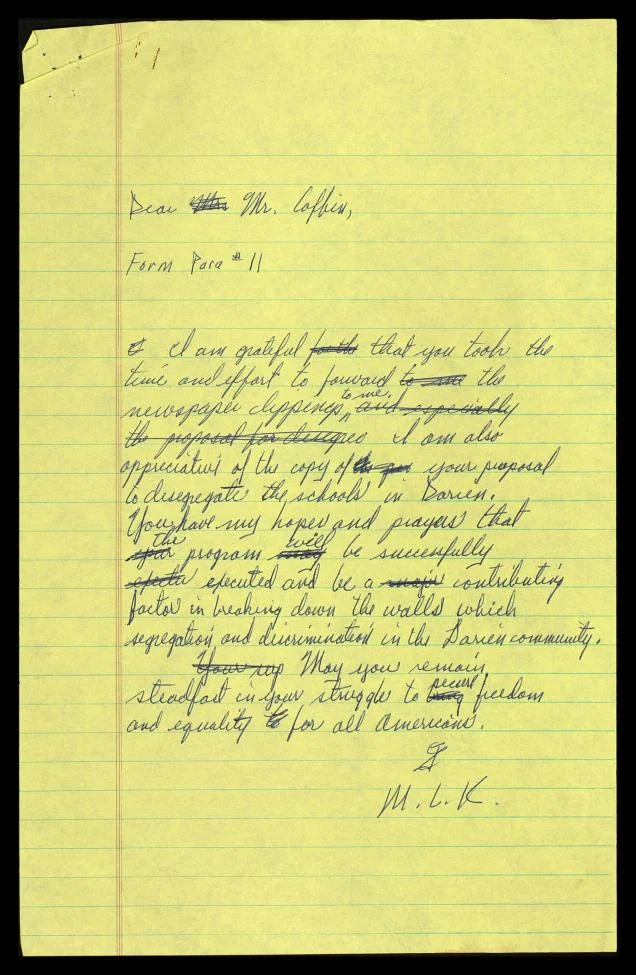 Dear Mrs Mr. Coffin,
Form Para #11
I I am grateful for the that you took the
time and effort to forward to me the
newspaper clippings to me. and especially
the proposal for desegreg I am also
appreciative of the copy of your proposal
to desegregate the schools in Darien.
You have my hopes and prayers that
your the program may will be successfully
executed and be a major contributing
factor in breaking down the walls which
segregation and discrimination in the Darien community.
Your May you remain
steadfast in your struggle to bring secure freedom
and equality to for all Americans.
M.L.K.